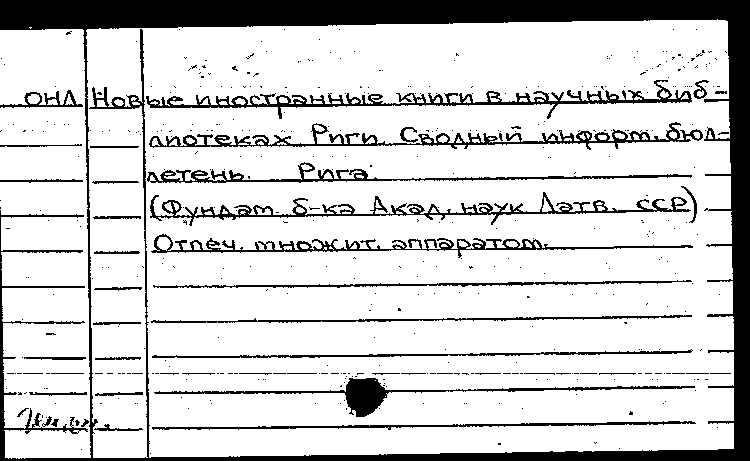 ОНЛ Новые иностранные книги в научных биб-
лиотеках Риги. Сводный информ. бюл-
летень. Рига.
(Фундам. б-ка Акад. наук Латв. ССР)
Отпеч. множит. аппаратом.